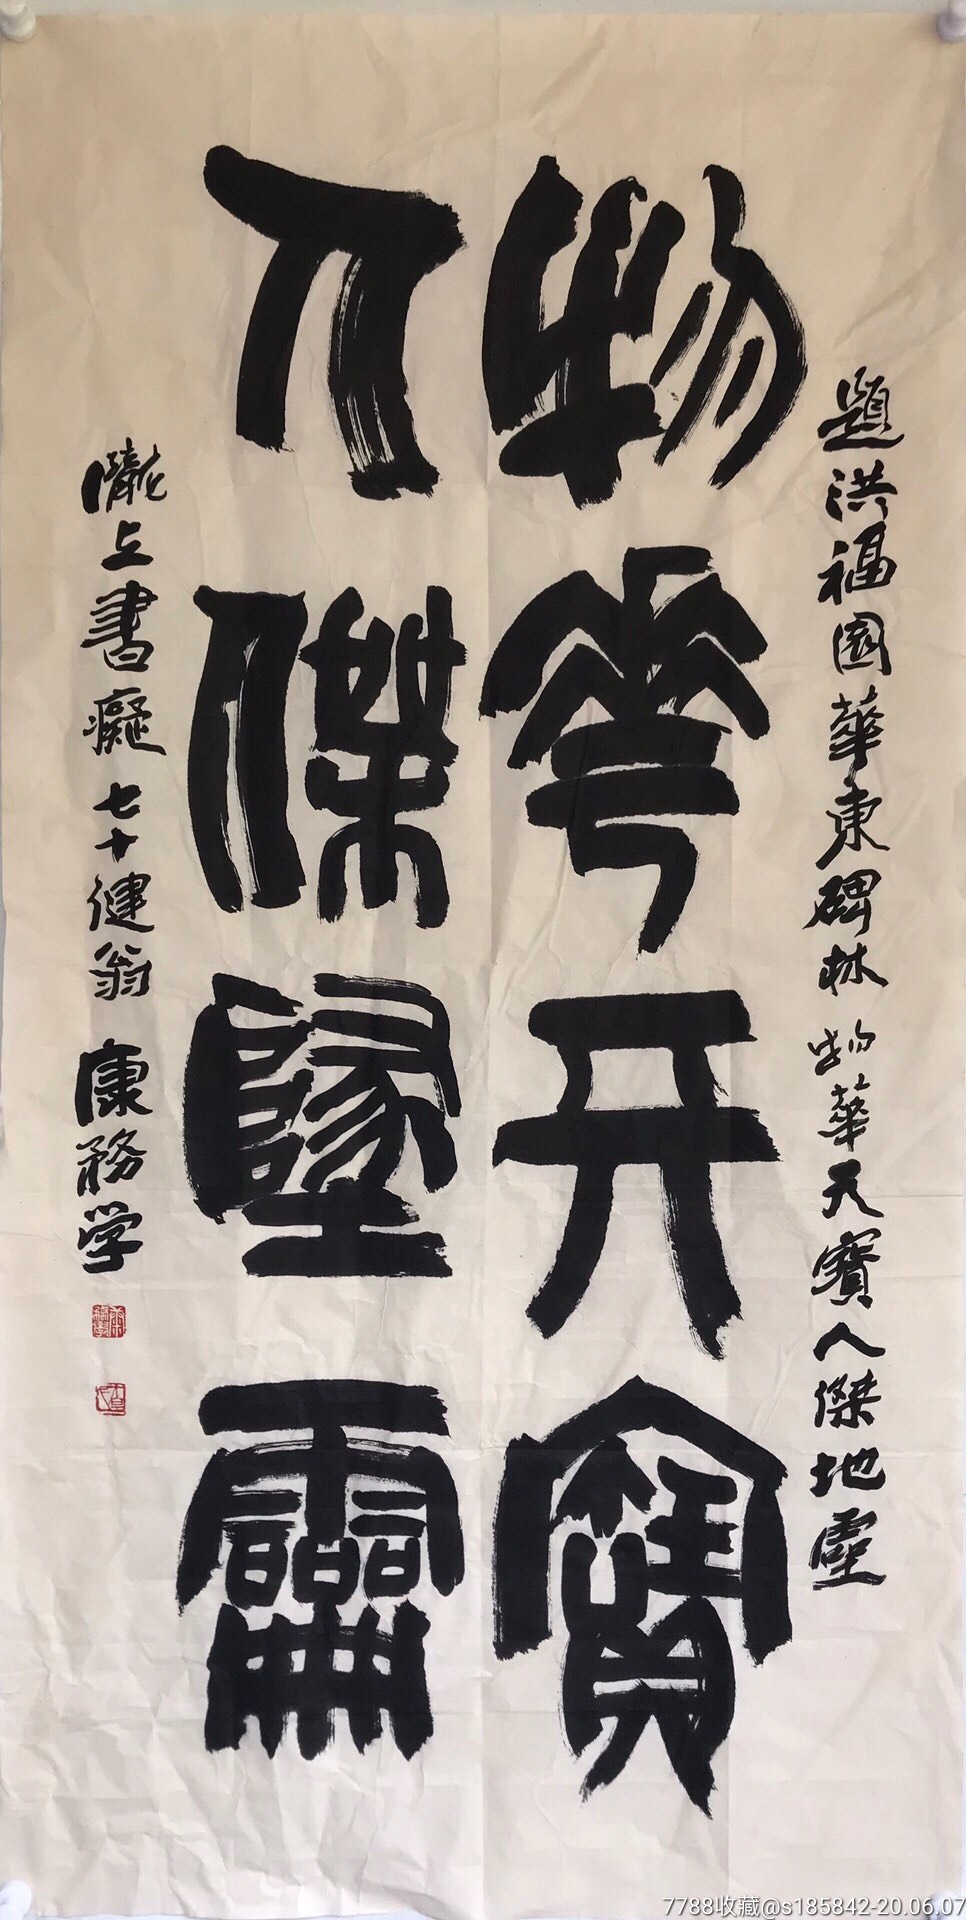 題洪福園華東碑林 物華天寶人傑地靈
物華天寶
人傑地靈
隴上書癡七十健翁 康務学
7788收藏@s185842-20.06.07